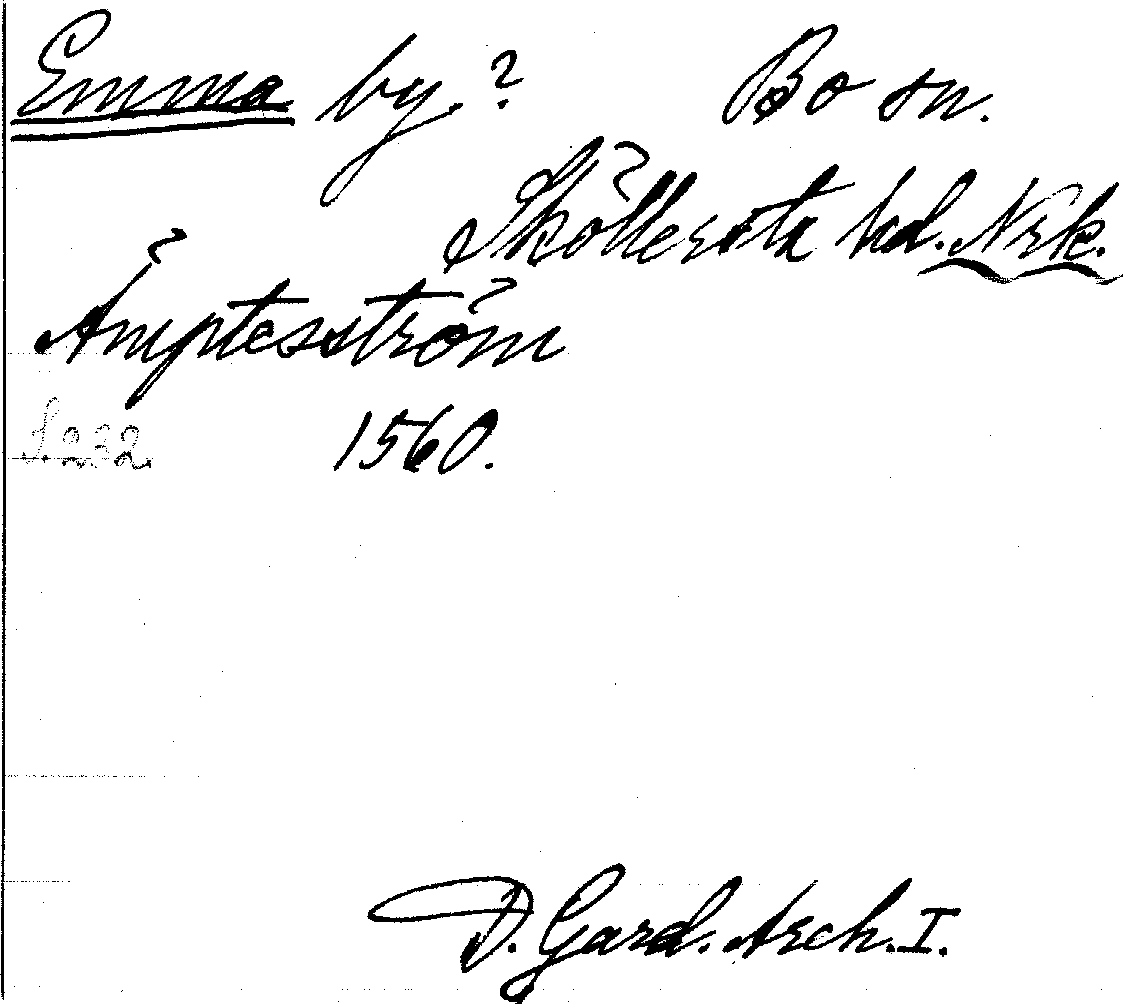 Emma by.? Bo sn.
Sköllersta hd. Nrk.
Ämptesström
S. 232. 1560.
D. Gard. Arch. I.